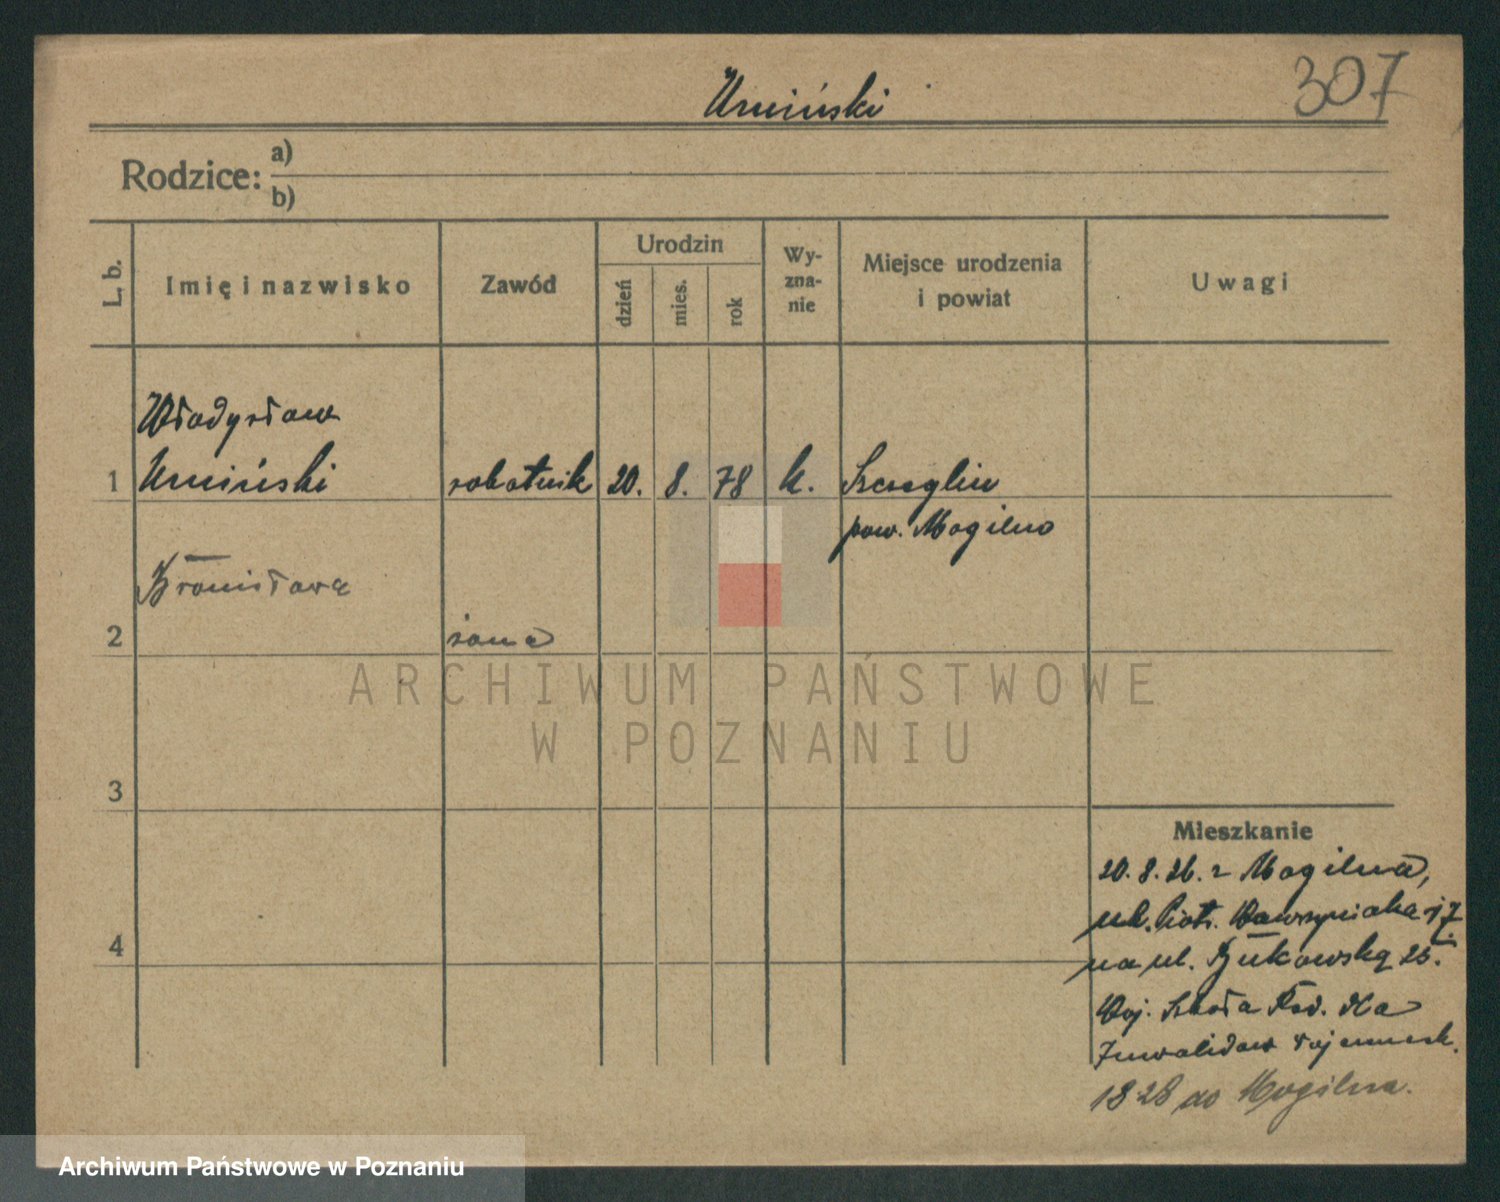 307
Umiński
Rodzice: a)
b)
L. b.
Imię i nazwisko
Zawód
Urodzin
dzień
mies.
rok
Wy-
zna-
nie
Miejsce urodzenia
i powiat
Uwagi
Władysław
1 Umiński robotnik 20. 8. 78 k. Szczeglin
pow. Mogilno
Bronisława
2 żona
3
4
Mieszkanie
20. 8. 26. z Mogilna,
ul. Piotr. Wawrzyniaka 17
na ul. Bukowską 25.
Woj. Szkoła Zaw. dla
Inwalidów wojennych.
28 do Mogilna.
ARCHIWUM PAŃSTWOWE
W POZNANIU
Archiwum Państwowe w Poznaniu